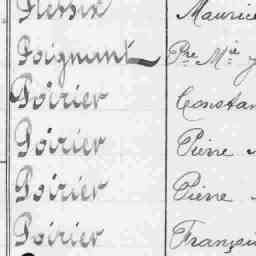 Plessix Maurice
Poignant Pre Mie
Poirier Constan
Poirier Pierre
Poirier Pierre
Poirier Françoi